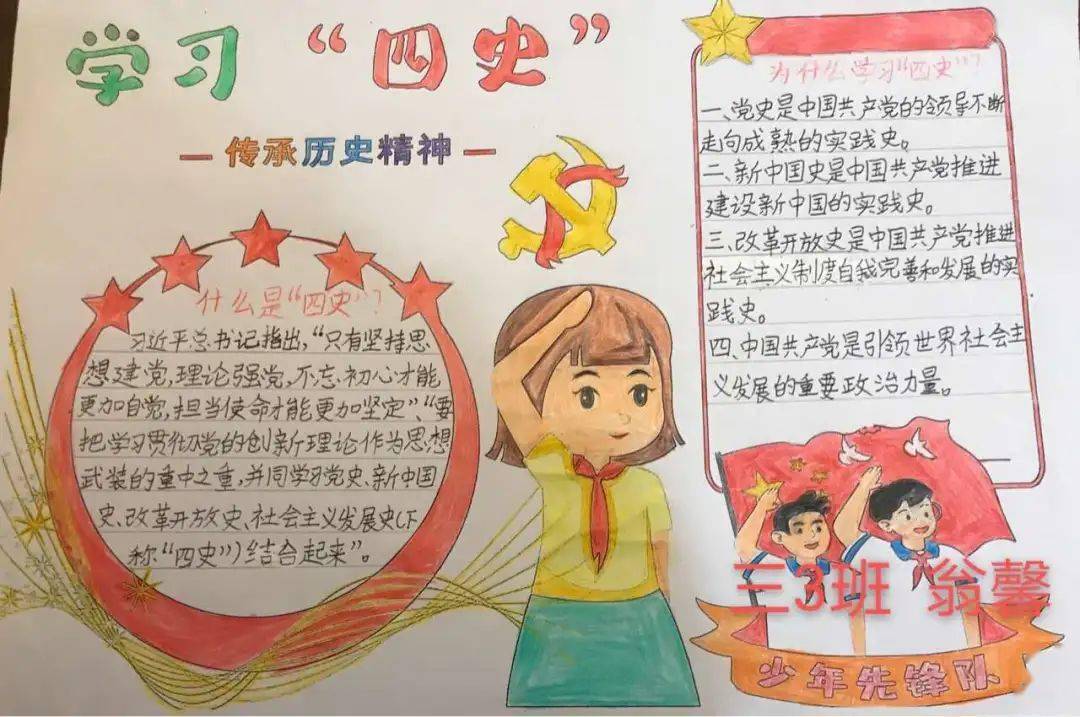 学习“四史”
—传承历史精神—
什么是“四史”?
习近平总书记指出,“只有坚持思
想建党,理论强党,不忘初心才能
更加自觉,担当使命才能更加坚定”、“要
把学习贯彻党的创新理论作为思想
武装的重中之重,并同学习党史、新中国
史、改革开放史、社会主义发展史(下
称“四史”)结合起来”。
为什么学习“四史”?
一、党史是中国共产党的领导不断
走向成熟的实践史。
二、新中国史是中国共产党推进
建设新中国的实践史。
三、改革开放史是中国共产党推进
社会主义制度自我完善和发展的实
践史。
四、中国共产党是引领世界社会主
义发展的重要政治力量。
三3班 翁馨
少年先锋队